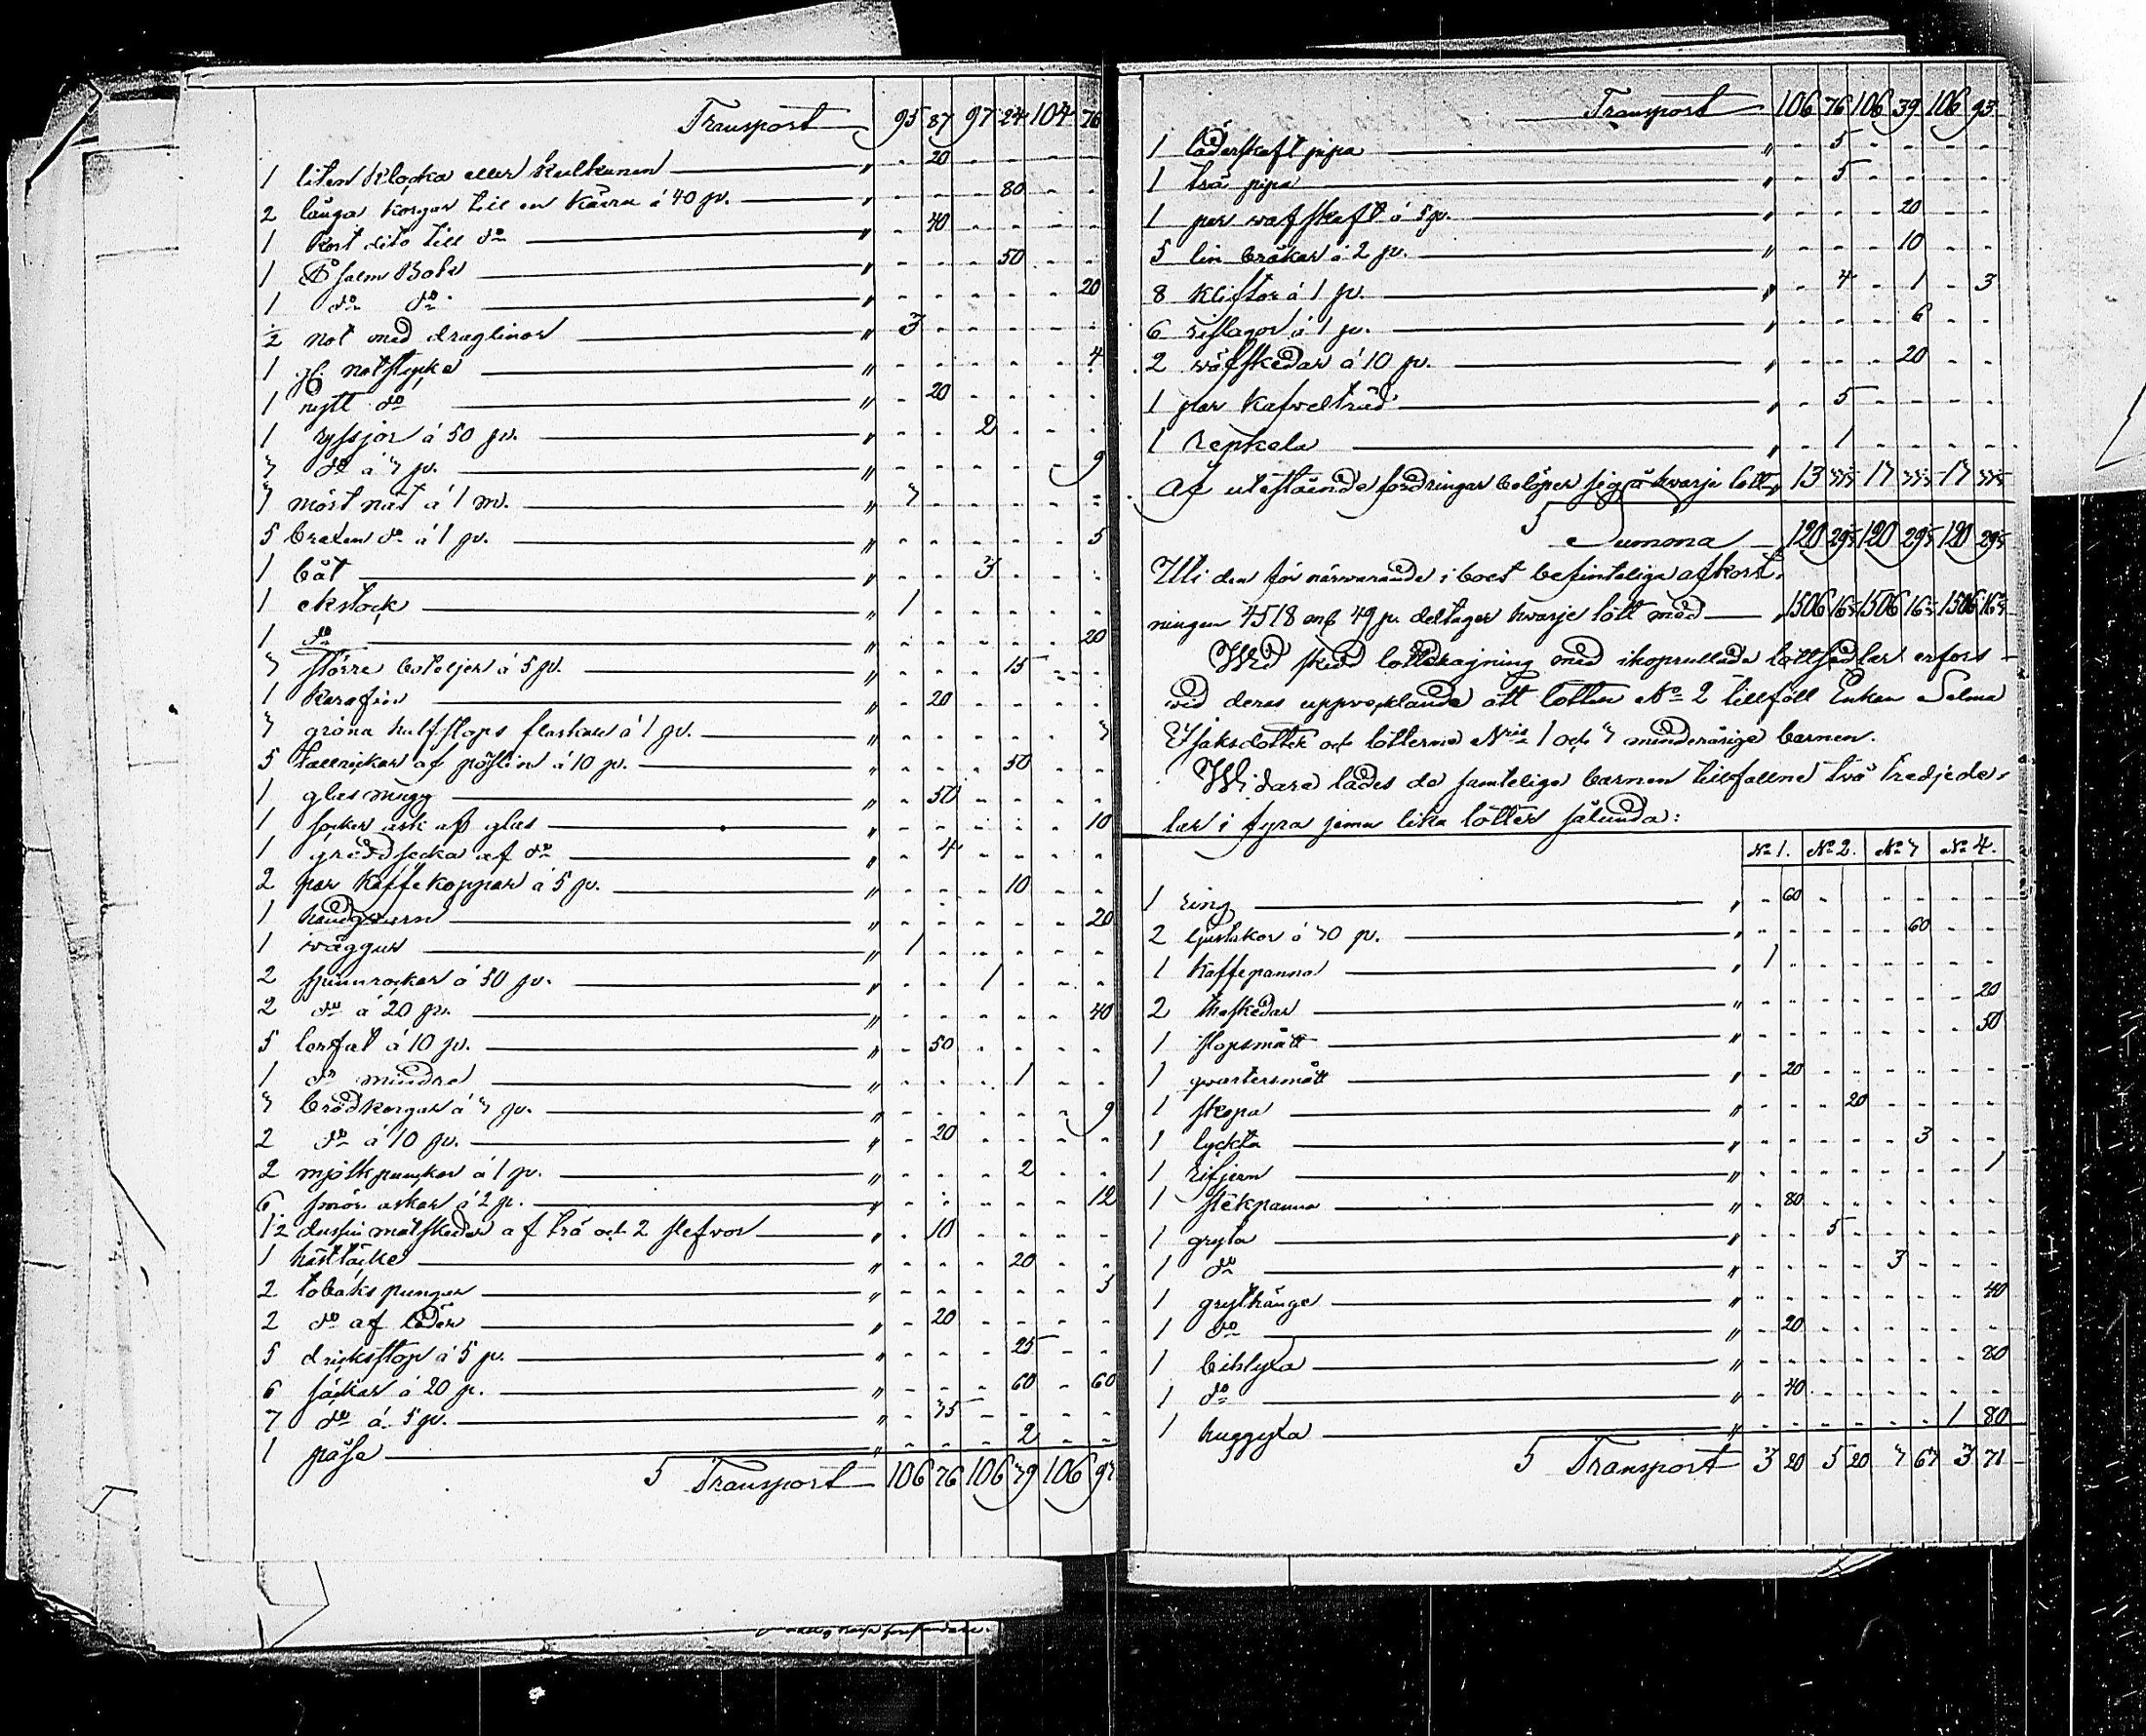 Transport 95 87 97 24 104 76
1 liten Klocka eller Kulkunen " - 20 - - - -
2 långa Korgar till en Kärra á 40 pi. " - - - 80 - -
1 Kort dito till do " - 40 - - - -
1 Psalm Bok " - - - 50 - -
1 do do " - - - - - 20
½ not med draglinor " 3 - - - - -
1 gl. notstycke " - - - - - 4
1 nytt do " - 20 - - - -
ryssjor á 50 pi. " - - 2 - - -
3 do á 3 pi. " - - - - - 9
3 mört nät á 1 m. " 3 - - - - -
5 braxen do á 1 pi. " - - - - - 5
1 båt " - - 3 - - -
1 ekstock " 1 - - - - -
1 do " - - - - - 20
3 större boteljer á 5 pi. " - - - 15 - -
1 Karafin " - 20 - - - -
3 gröna half stops flaskor á 1 pi. " - - - - - 3
5 tallrickar af póslin á 10 pi. " - - - 50 - -
1 glas mugg " - 50 - - - -
1 socker ask af glas " - - - - - 10
1 gräddsnecka af do " - 4 - - - -
2 par Kaffe Koppar á 5 pi. " - - - 10 - -
1 handqvarn " - - - - - 20
1 väggur " 1 - - - - -
2 spinnrockar á 50 pi. " - - 1 - - -
2 do á 20 pi. " - - - - - 40
5 lerfat á 10 pi. " - 50 - - - -
1 do mindre " - - - 1 - -
3 brödkorgar á 3 pi. " - - - - - 9
2 do á 10 pi. " - 20 - - - -
2 mjölkpunkor á 1 pi. " - - - 2 - -
6 smör askar á 2 p. " - - - - - 12
½ dussin matskedar af trä och 2 slefvor " - 10 - - - -
1 hästtäcke " - - - 20 - -
2 tobaks pungar " - - - - - 3
2 do af läder " - 20 - - - -
5 dricksstop á 5 pi. " - - - 25 - -
6 säckar á 20 p. " - - - 60 - 60
7 do á 5 pi. " - 35 - - - -
1 påse " - - - 2 - -
S Transport 106 76 106 39 106 93
Transport 106 76 106 39 106 93
1 läderskaft pipa " - 5 - - - -
1 trä pipa " - 5 - - - -
par wafskaft á 5 pi. " - - - 20 - -
5 lin bråkar á 2 pi. " - - - 10 - -
8 Kliftor á 1 pi. " - 4 - 1 - 3
6 á 1 pi. " - - - 6 - -
2 wäfskedar á 10 pi. " - - - 20 - -
1 par Kafveltrüd " - 5 - - - -
1 Repkela " - 1 - - - -
Af utestående fordringar belöper sig å hvarje lott 13
S Summa 120 120 120
Uti den för närvarande i boet befinteliga afkort-
ningen 4518 m 49 pi. deltager hvarje lott med 1506 16⅓ 1506 16⅓ 1506 16⅓
Wid skedd lottdragning med ihoprullade lottsedlar erfors
vid deras uppvecklande att lotten No 2 tillföll Enkan Selma
Isaksdotter och lotterna Nris 1 och 3 minderårige barnen.
Widare lades de samteliga barnen tillfallne två tredjede-
lar i fyra jemn lika lotter sålunda:
No 1. No 2. No 3 No 4.
1 ring " - 60 - - - - - -
2 ljustakor á 30 pi. " - - - - - 60 - -
1 Kaffepanna " 1 - - - - - - -
2 theskedar " - - - - - - - 20
1 stopsmått " - - - - - - - 50
1 qvartersmått " - 20 - - - - - -
1 skopa " - - - 20 - - - -
1 lyckta " - - - - - 3 - -
1 rifjern " - - - - - - - 1
1 stekpanna " - 80 - - - - - -
1 gryta " - - 5 - - - - -
1 do " - - - - 3 - - -
1 grythänge " - - - - - - - 40
1 do " - 20 - - - - - -
1 bihlyxa " - - - - - - - 80
1 do " - 40 - - - - - -
1 huggyxa " - - - - - - 1 80
S Transport 3 20 5 20 3 63 3 71